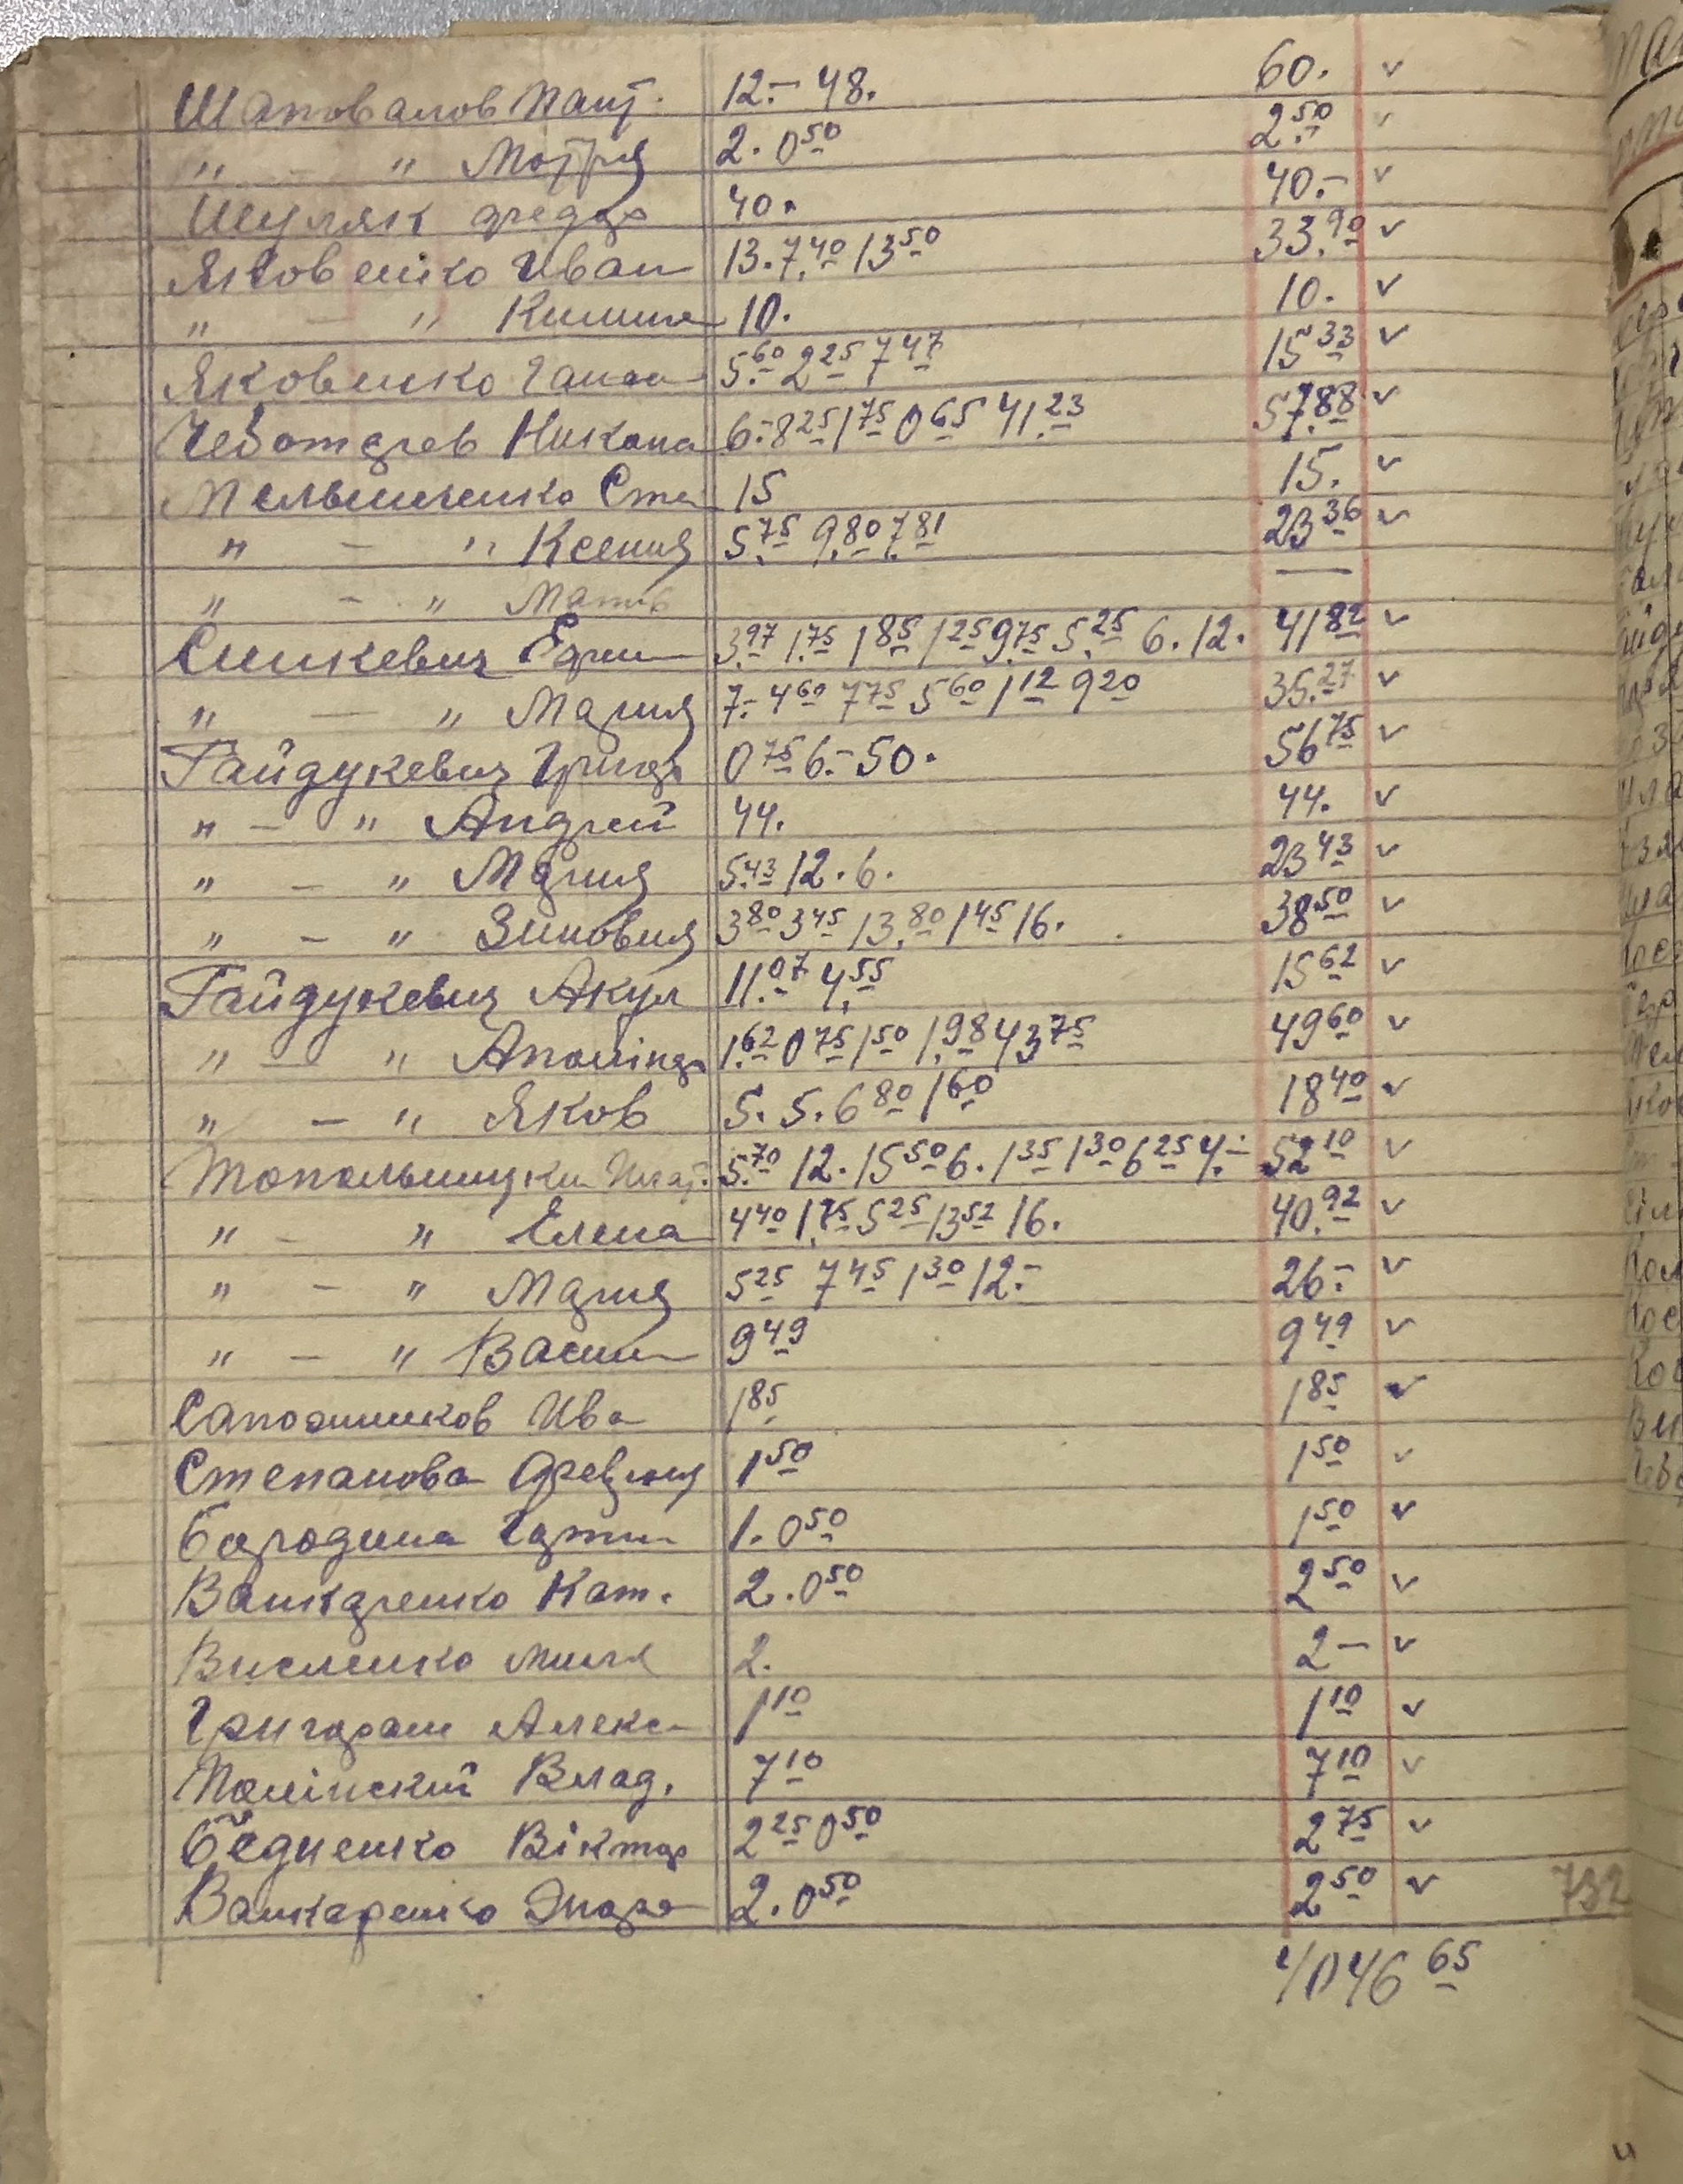 Шаповалов Пант. 12.- 48. 60. v
" - " Мотря 2. 0 50 2.50 v
Шуляк Федор 40. 40.- v
Яковенко Иван 13. 7.40 13 50 33.90 v
" - " Килина 10. 10. v
Яковенко Ганна 5.60 2 25 7 47 15 33 v
Чеботарев Никона 6.- 8 25 1 75 0 65 41.23 57.88 v
Мельниченко Сте 15 15. v
" - " Ксения 5.75 9.80 7.81 23 36 v
" - " Матв —
Синкевич Ефим 3.97 1.75 1 85 1 25 9.75 5.25 6. 12. 41 82 v
" - " Мария 7.- 4 60 7 75 5 60 1 12 9 20 35.27 v
Гайдукевич Григор 0 75 6.- 50. 56 75 v
" - " Андрей 44. 44. v
" - " Мария 5.43 12. 6. 23 43 v
" - " Зиновия 3 80 3 45 13.80 1 45 16. 38.50 v
Гайдукевич Акул 11.07 4.55 15 62 v
" - " 1.62 0 75 1 50 1.98 43 75 49 60 v
" - " Яков 5. 5. 6 80 1 60 18 40 v
Топольницки Игнат. 5.70 12. 15 50 6. 1 35 1 30 6 25 4.- 52 10 v
" - " Елена 4 40 1.75 5 25 13 52 16. 40.92 v
" - " Мария 5 25 7 45 1 30 12.- 26.- v
" - " Васил 9 49 9 49 v
Сапожников Ива 1 85 1 85 v
Степанова 1 50 1 50 v
Бородина 1. 0 50 1 50 v
Вашкаренко Кат. 2. 0 50 2 50 v
Висленко 2. 2 - v
Григораш Алекс 1 10 1 10 v
Влад. 7 10 7 10 v
Бедненко Віктор 2 25 0 50 2 75 v
Вашкаренко 2. 0 50 2 50 v
732
4046 65